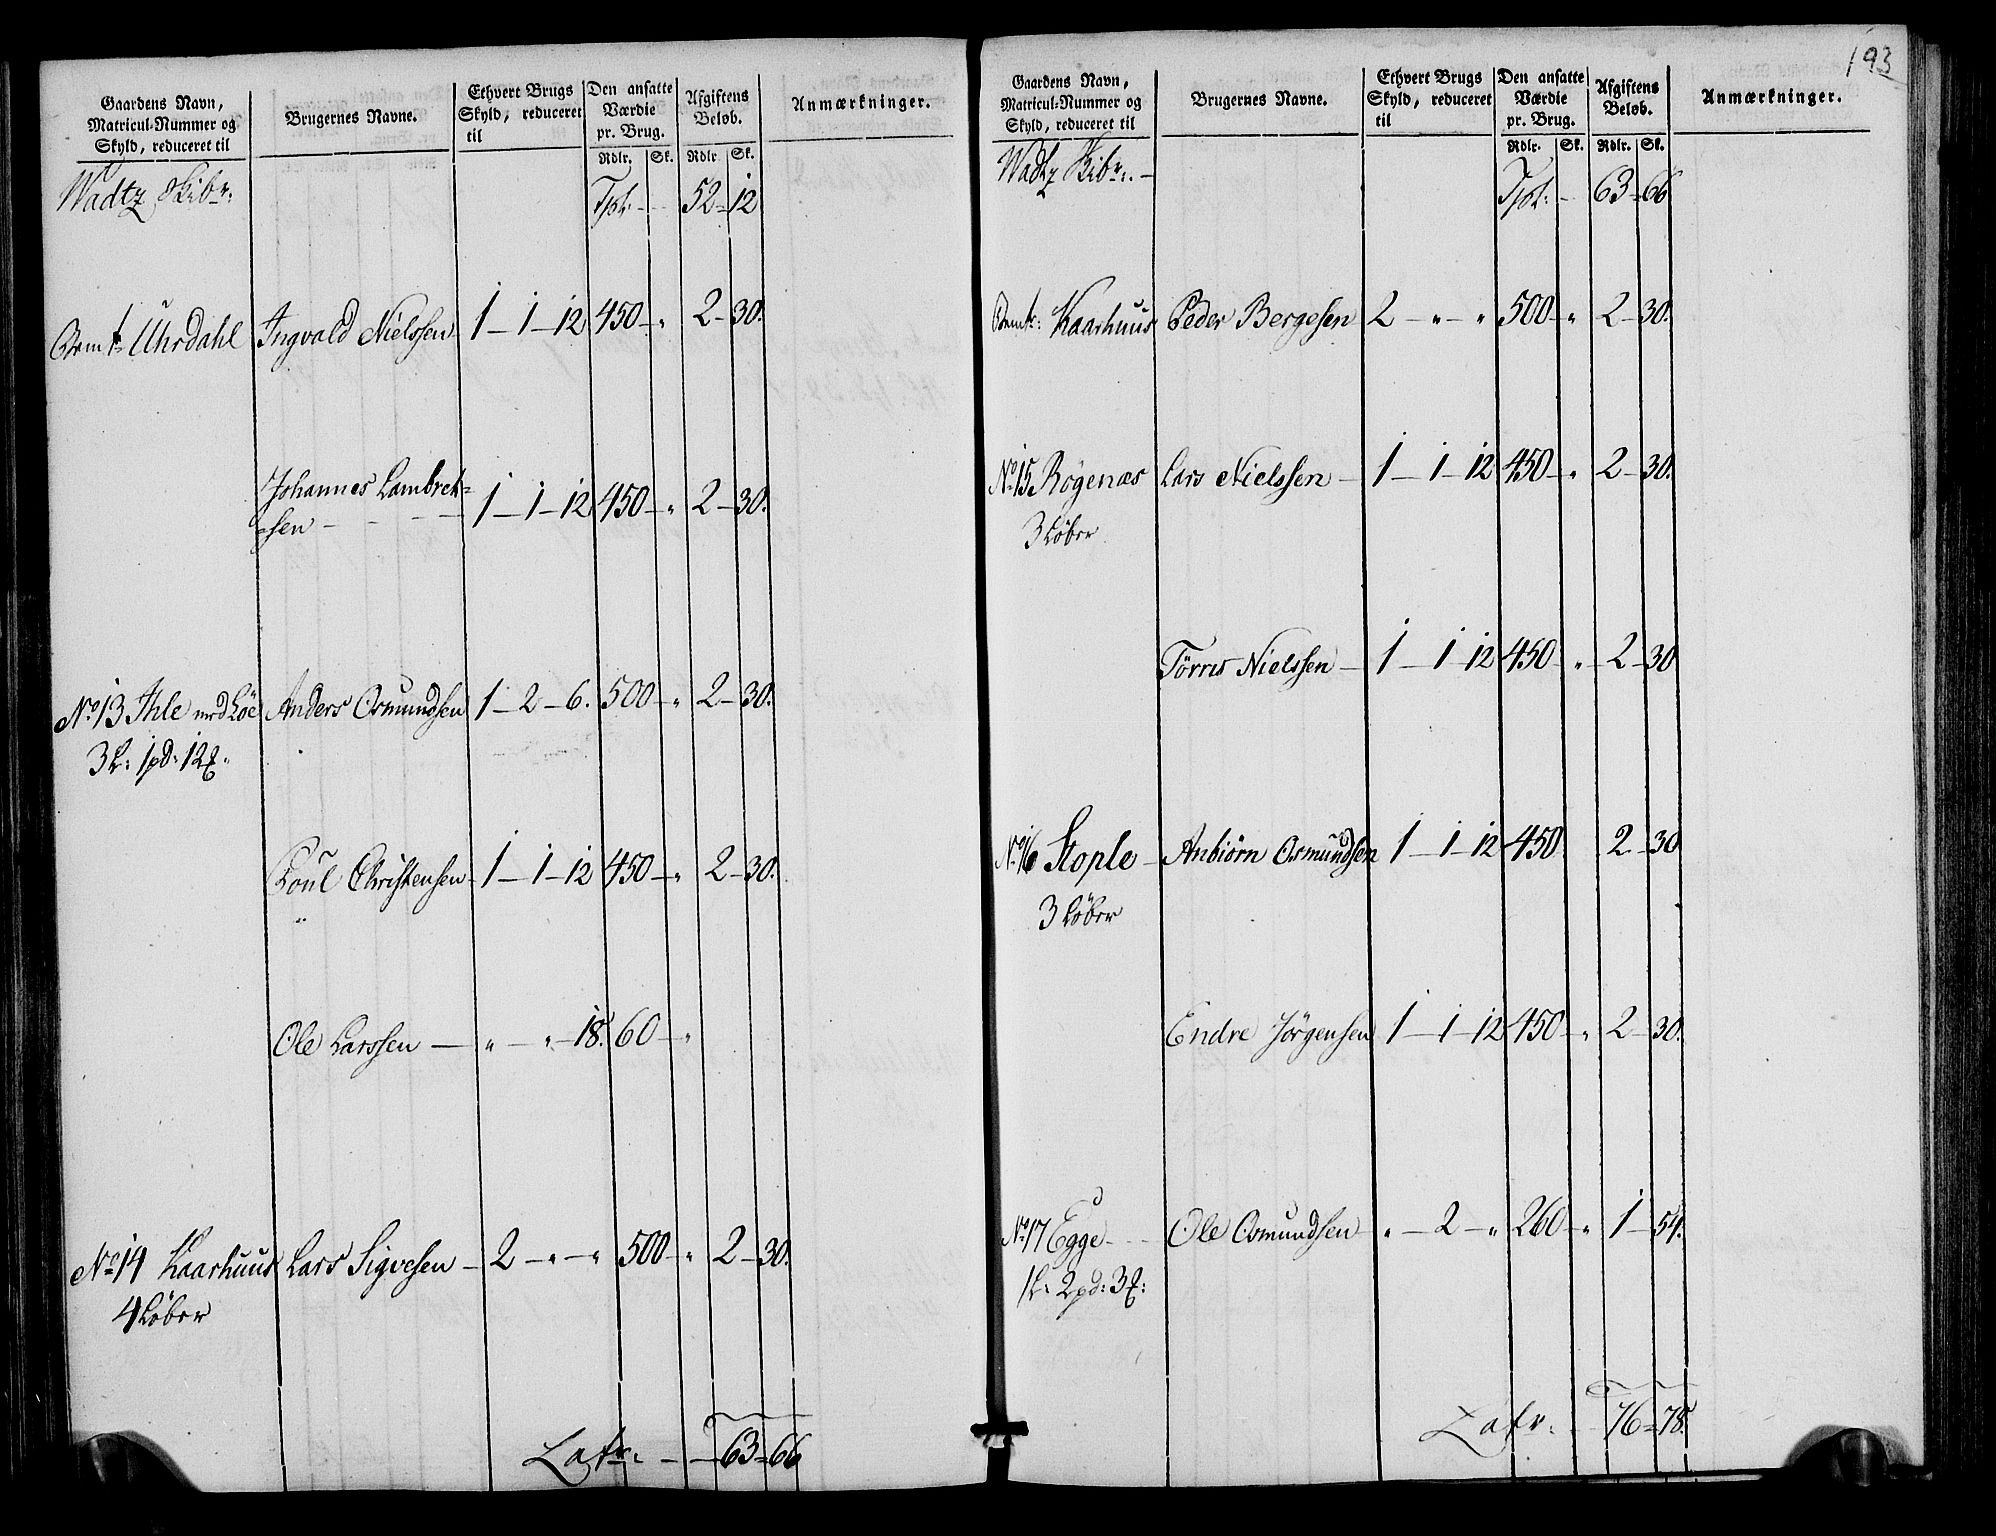 Gaardens Navn, Matricul-Nummer og Skyld, reduceret til | Brugernes Navne. | Ethvert Brugs Skyld, reduceret til | Den ansatte Værdie pr. Brug. Rdlr. Sk. | Afgiftens Beløb. Rdlr Sk. | Anmærkninger.
Wadtz Skibr: Tpt: 52 - 12
Bemt Uhrdahl Ingvald Nielssen 1 - 1 - 12 450 - " 2 - 30.
Johannes Lambret=
sen - 1 - 1 - 12 450 - " 2 - 30.
No 13 Ihle med Löe Anders Osmundsen 1 - 2 - 6. 500 - " 2 - 30.
3 L: 1 pd: 12
Poul Christensen 1 - 1 - 12 450 - " 2 - 30.
Ole Larssen - " - " - 18. 60 - "
No 14 Kaarhuus Lars Sigvesen - 2 - " - " 500 - " 2 - 30.
4 Löber
Latr: - 63 = 66
193
Gaardens Navn, Matricul-Nummer og Skyld, reduceret til | Brugernes Navne. | Ethvert Brugs Skyld, reduceret til | Den ansatte Værdie pr. Brug. Rdlr. Sk. | Afgiftens Beløb. Rdlr. Sk. | Anmærkninger.
Wadtz Skibr: - Tpt: 63 = 66
Bemt: Kaarhuus Peder Bergesen 2 - " - " 500 - " 2 - 30.
No 15 Rögenæs Lars Nielssen - 1 - 1 - 12 450 - " 2 - 30.
3 Löber
Törres Nielssen - 1 - 1 - 12 450 - " 2 - 30
No 16 Stople - Anbiörn Osmundsen 1 - 1 - 12 450 2 - 30
3 Löber
Endre Jörgensen 1 - 1 - 12 450 - " 2 - 30.
No 17 Egge - Ole Osmundsen " - 2 - " 260 - " 1 - 54.
1 L: 2 pd: 3
Latr: 76 = 78.